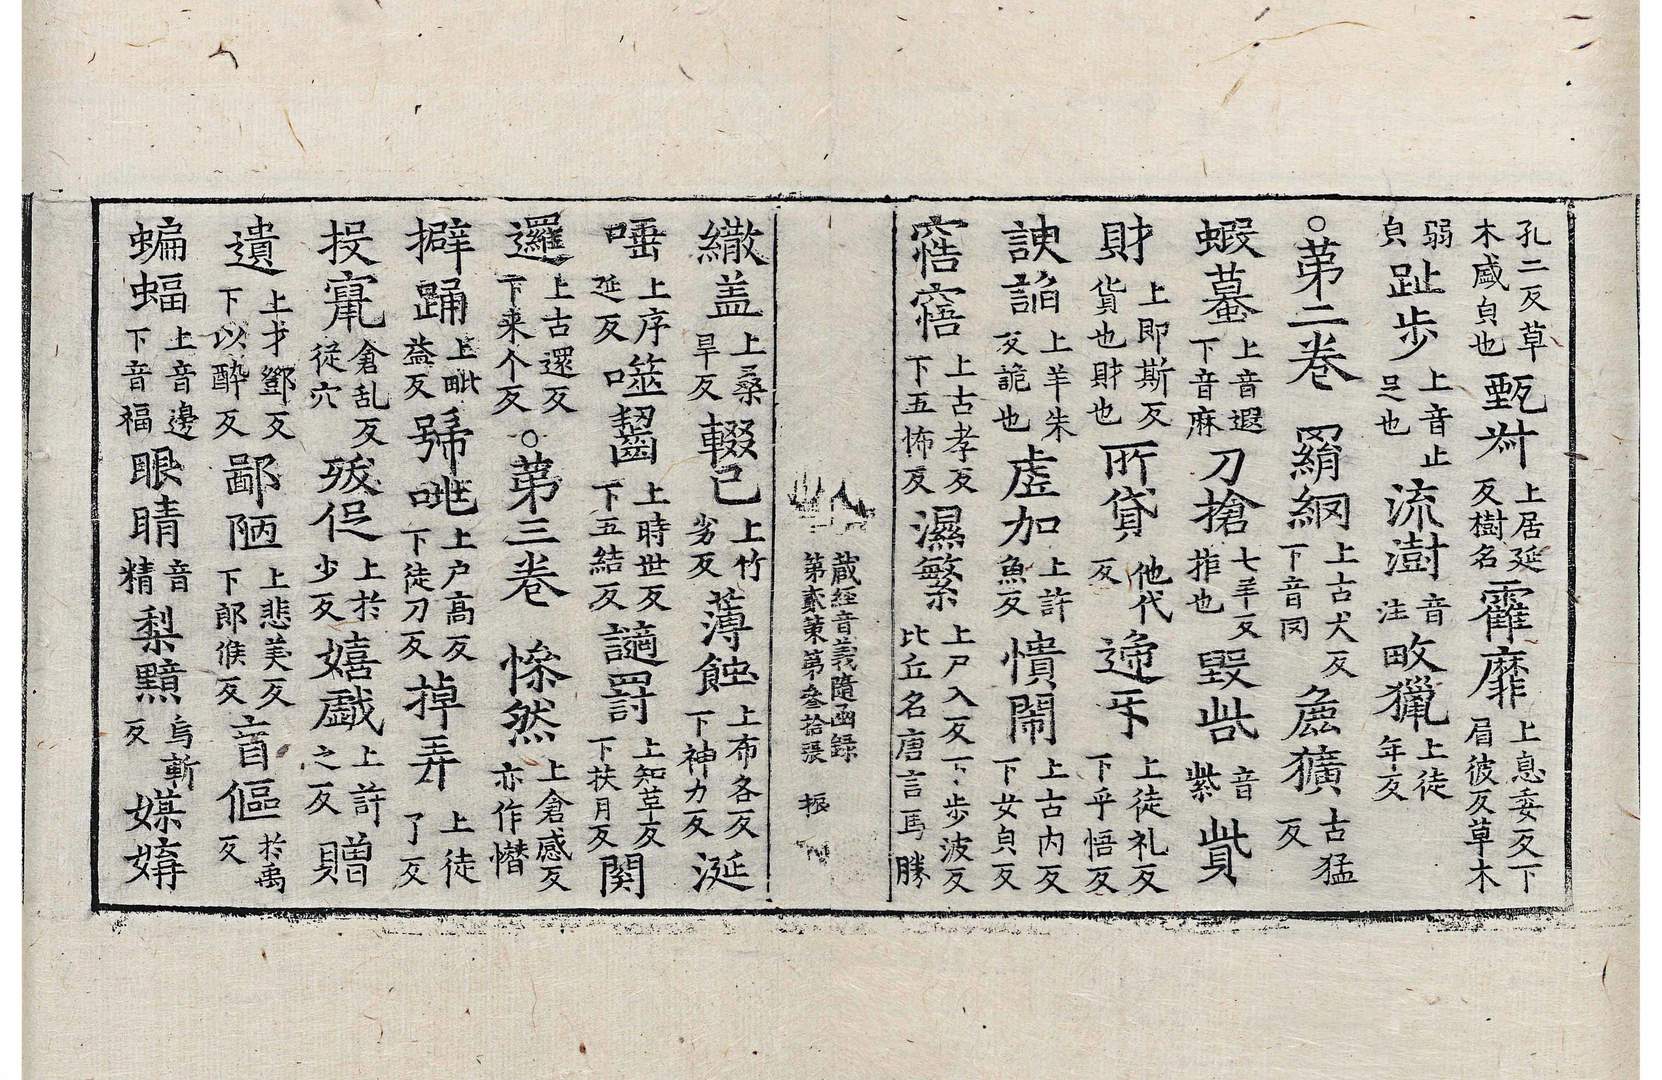 孔二反草木盛皃也甄対上居延反樹名靃靡上息委反下眉彼反草木
弱皃趾步上音止足也流澍音注畋獵上徒年反
○第二卷 羂網上古犬反下音罔麁獷古猛反
蝦蟇上音遐下音麻刀搶七羊反推也毀呰音紫貲
財上即斯反貨也財也所貸他代反遆乎上徒礼反下乎悟反
諛諂上羊朱反詭也虗加上許魚反憒閙上古内反下女皃反
窖窹上古孝反下五怖反濕繁上尸入反下步波反比丘名唐言馬勝
藏經音義隨函錄
第貳策第叄拾張 振
繖盖上桑旱反輟已上竹劣反薄蝕上布各反下神力反涎
唾上序延反噬齧上時世反下五結反讁罸上知革反下扶月反関
邏上古還反下来个反○第三卷 慘然上倉感反亦作憯
擗踊上毗益反號咷上户高反下徒刀反掉弄上徒了反
投竄倉乱反從穴促上於少反嬉戲上許之反贈
遺上才鄧反下以醉反鄙陋上悲美反下郎候反傴於禹反
蝙蝠上音邊下音福眼睛音精梨黤烏斬反媒媾